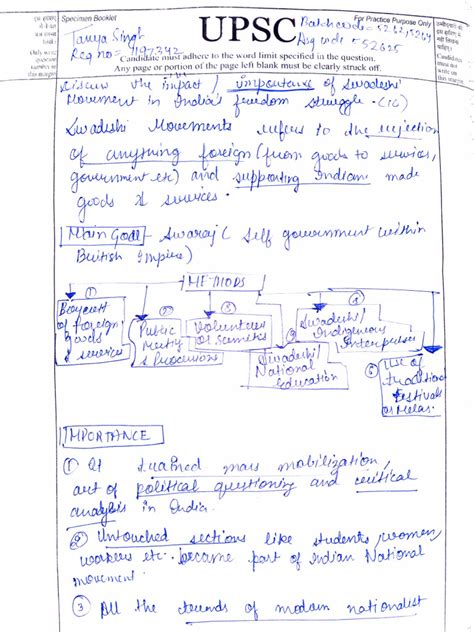 Specimen Booklet
UPSC
For Practice Purpose Only
Tanya Singh
Reg no=
Candidate must adhere to the word limit specified in the question.
Any page or portion of the page left blank must be clearly struck off.
Candidate must not write on this margin
Discuss the impact / importance of Swadeshi
Movement in India's freedom struggle.
Swadeshi Movements refers to the rejection
of anything foreign (from goods to services,
government etc) and supporting Indian made
goods & services.
Main Goal - Swaraj ( Self government within
British Empire)
METHODS
① Boycott of foreign goods & services
② Public meeting & Processions
③ Volunteers or Samitis
④ Swadeshi/ Indigenous Enterprises
⑤ Swadeshi/ National Education
⑥ Use of traditional festivals or Melas.
IMPORTANCE
① It learned mass mobilization,
art of political questioning and critical
analysis in India.
② Untouched sections like students, women,
workers etc. became part of Indian National
movement.
③ All the trends of modern nationalist